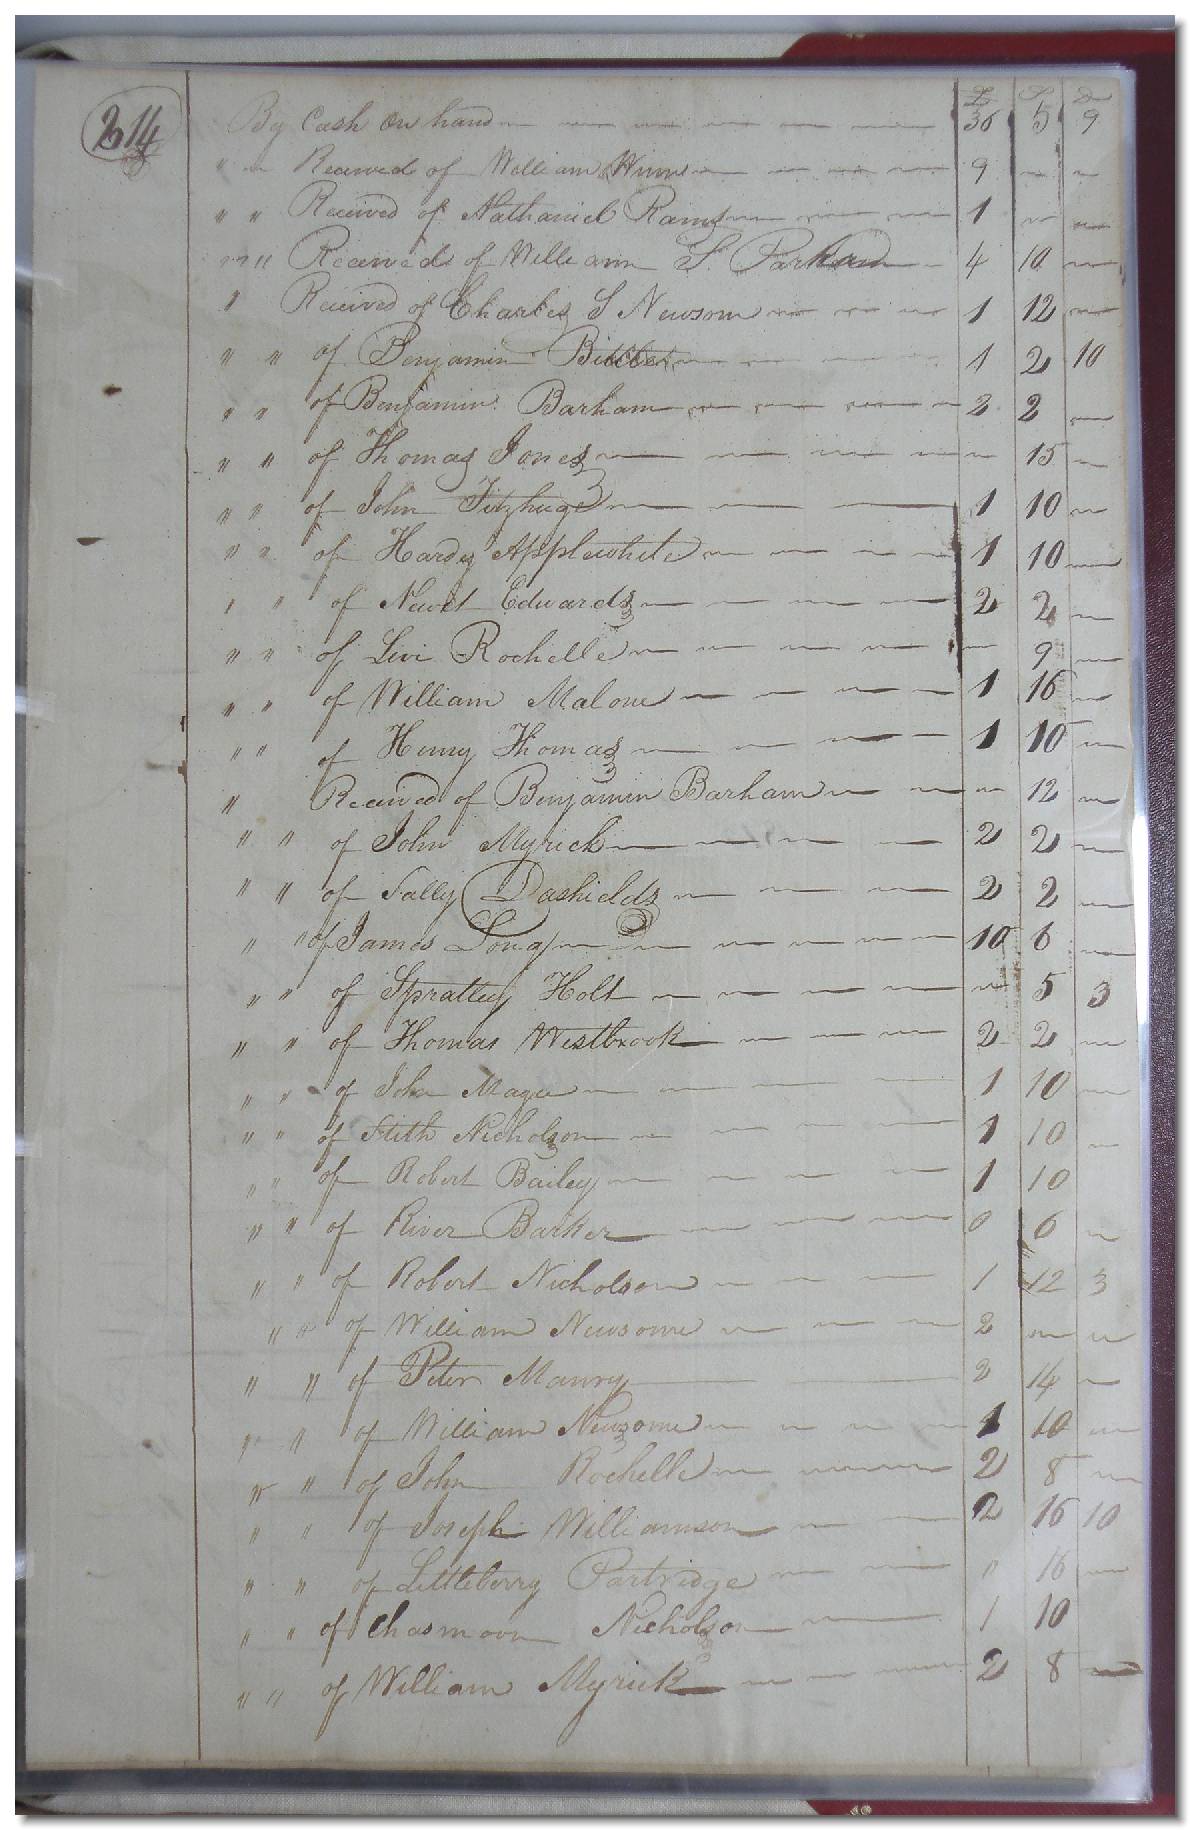 214
£ S D
By Cash on hand 36 5 9
" " Received of William Winn 9 " "
" " Received of Nathaniel 1 " "
" " Received of William S. Parham 4 10 "
" Received of Charles S Newsom 1 12 "
" " of Benjamin 1 2 10
" " of Benjamin Barham 2 2 "
" " of Thomas Jones " 15 "
" " of John Fitzhuge 1 10 "
" " of Hardy Applewhite 1 10 "
" " of Newit Edwards 2 2 "
" " of Levi Rochelle " 9 "
" " of William Malone 1 16 "
" " of Henry Thomas 1 10 "
" Received of Benjamin Barham " 12 "
" " of John Myrick 2 2 "
" " of Sally Dashields 2 2 "
" " of James Long 10 6 "
" " of Spratley Holt " 5 3
" " of Thomas Westbrook 2 2 "
" " of John Magee 1 10 "
" " of Stith Nicholson 1 10 "
" " of Robert Bailey 1 10
" " of River Barker 0 6 "
" " of Robert Nicholson 1 12 3
" " of William Newsome 2 " "
" " of Peter Manry 2 14 "
" " of William Newsome 1 10 "
" " of John Rochelle 2 8 "
" " of Joseph Williamson 2 16 10
" " of Littleberry Partridge " 16 "
" " of Chasmoon Nicholson 1 10
" " of William Myrick 2 8 "